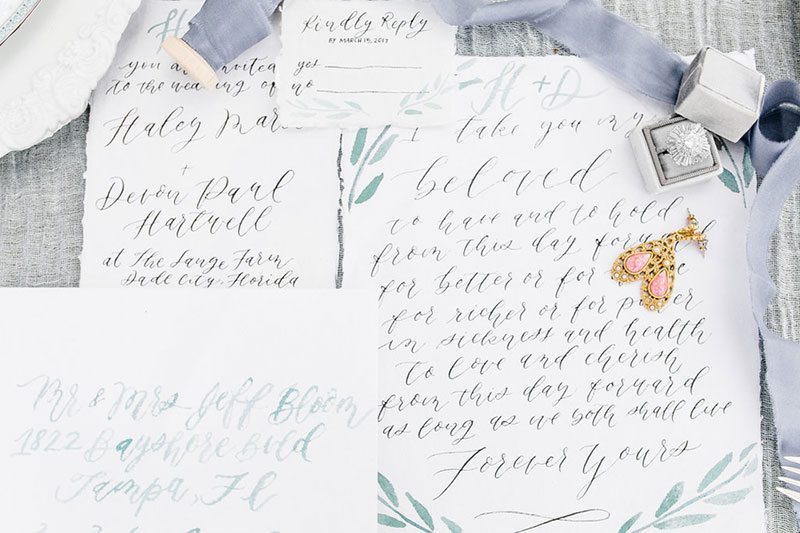 Kindly Reply
BY MARCH 15, 2017
yes
no
you are invited
to the wedding of
Haley Marie
+
Devon Paul
Hartwell
at The Lange Farm
Dade City, Florida
Mr & Mrs Jeff Bloom
1822 Bayshore Blvd
Tampa, Fl
H + D
I take you my
beloved
to have and to hold
from this day forward
for better or for
for richer or for poorer
in sickness and health
to love and cherish
from this day forward
as long as we both shall live
Forever Yours